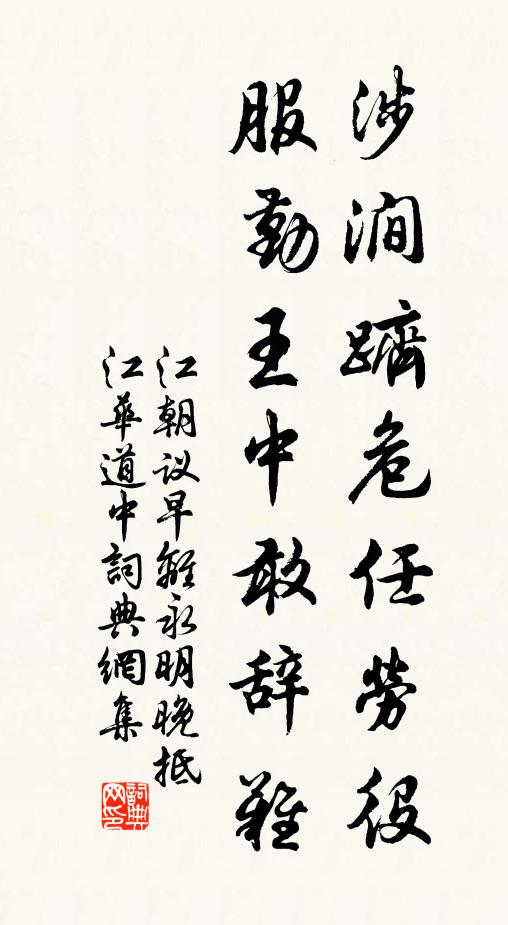 涉涧躋危任勞役
服勤王中敢辞難
江朝议早離永明晚抵
江華道中詞典網集
詞典网印